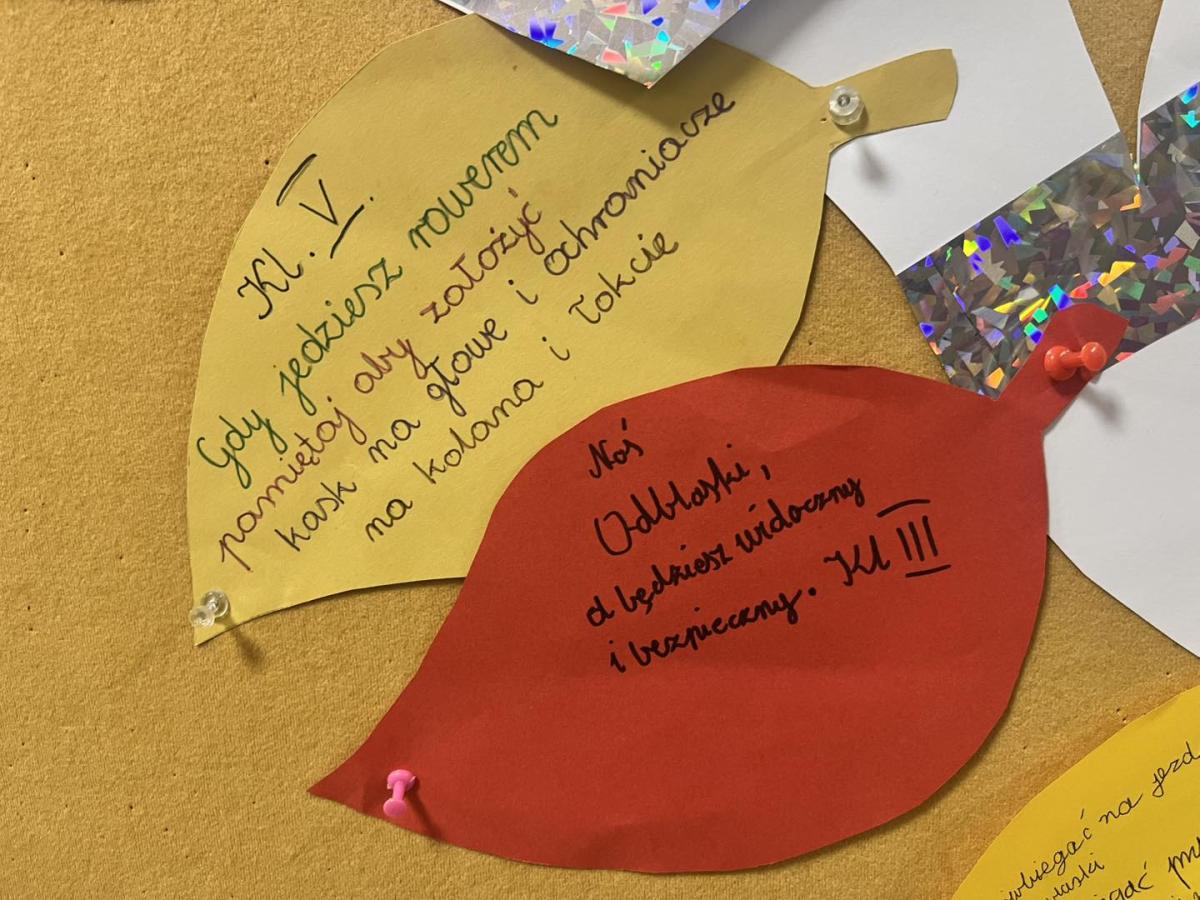 Kl. V.
Gdy jedziesz rowerem
pamiętaj aby założyć
kask na głowe i ochraniacze
na kolana i łokcie
Noś
Odblaski,
a będziesz widoczny
i bezpieczny. Kl III
na jezd